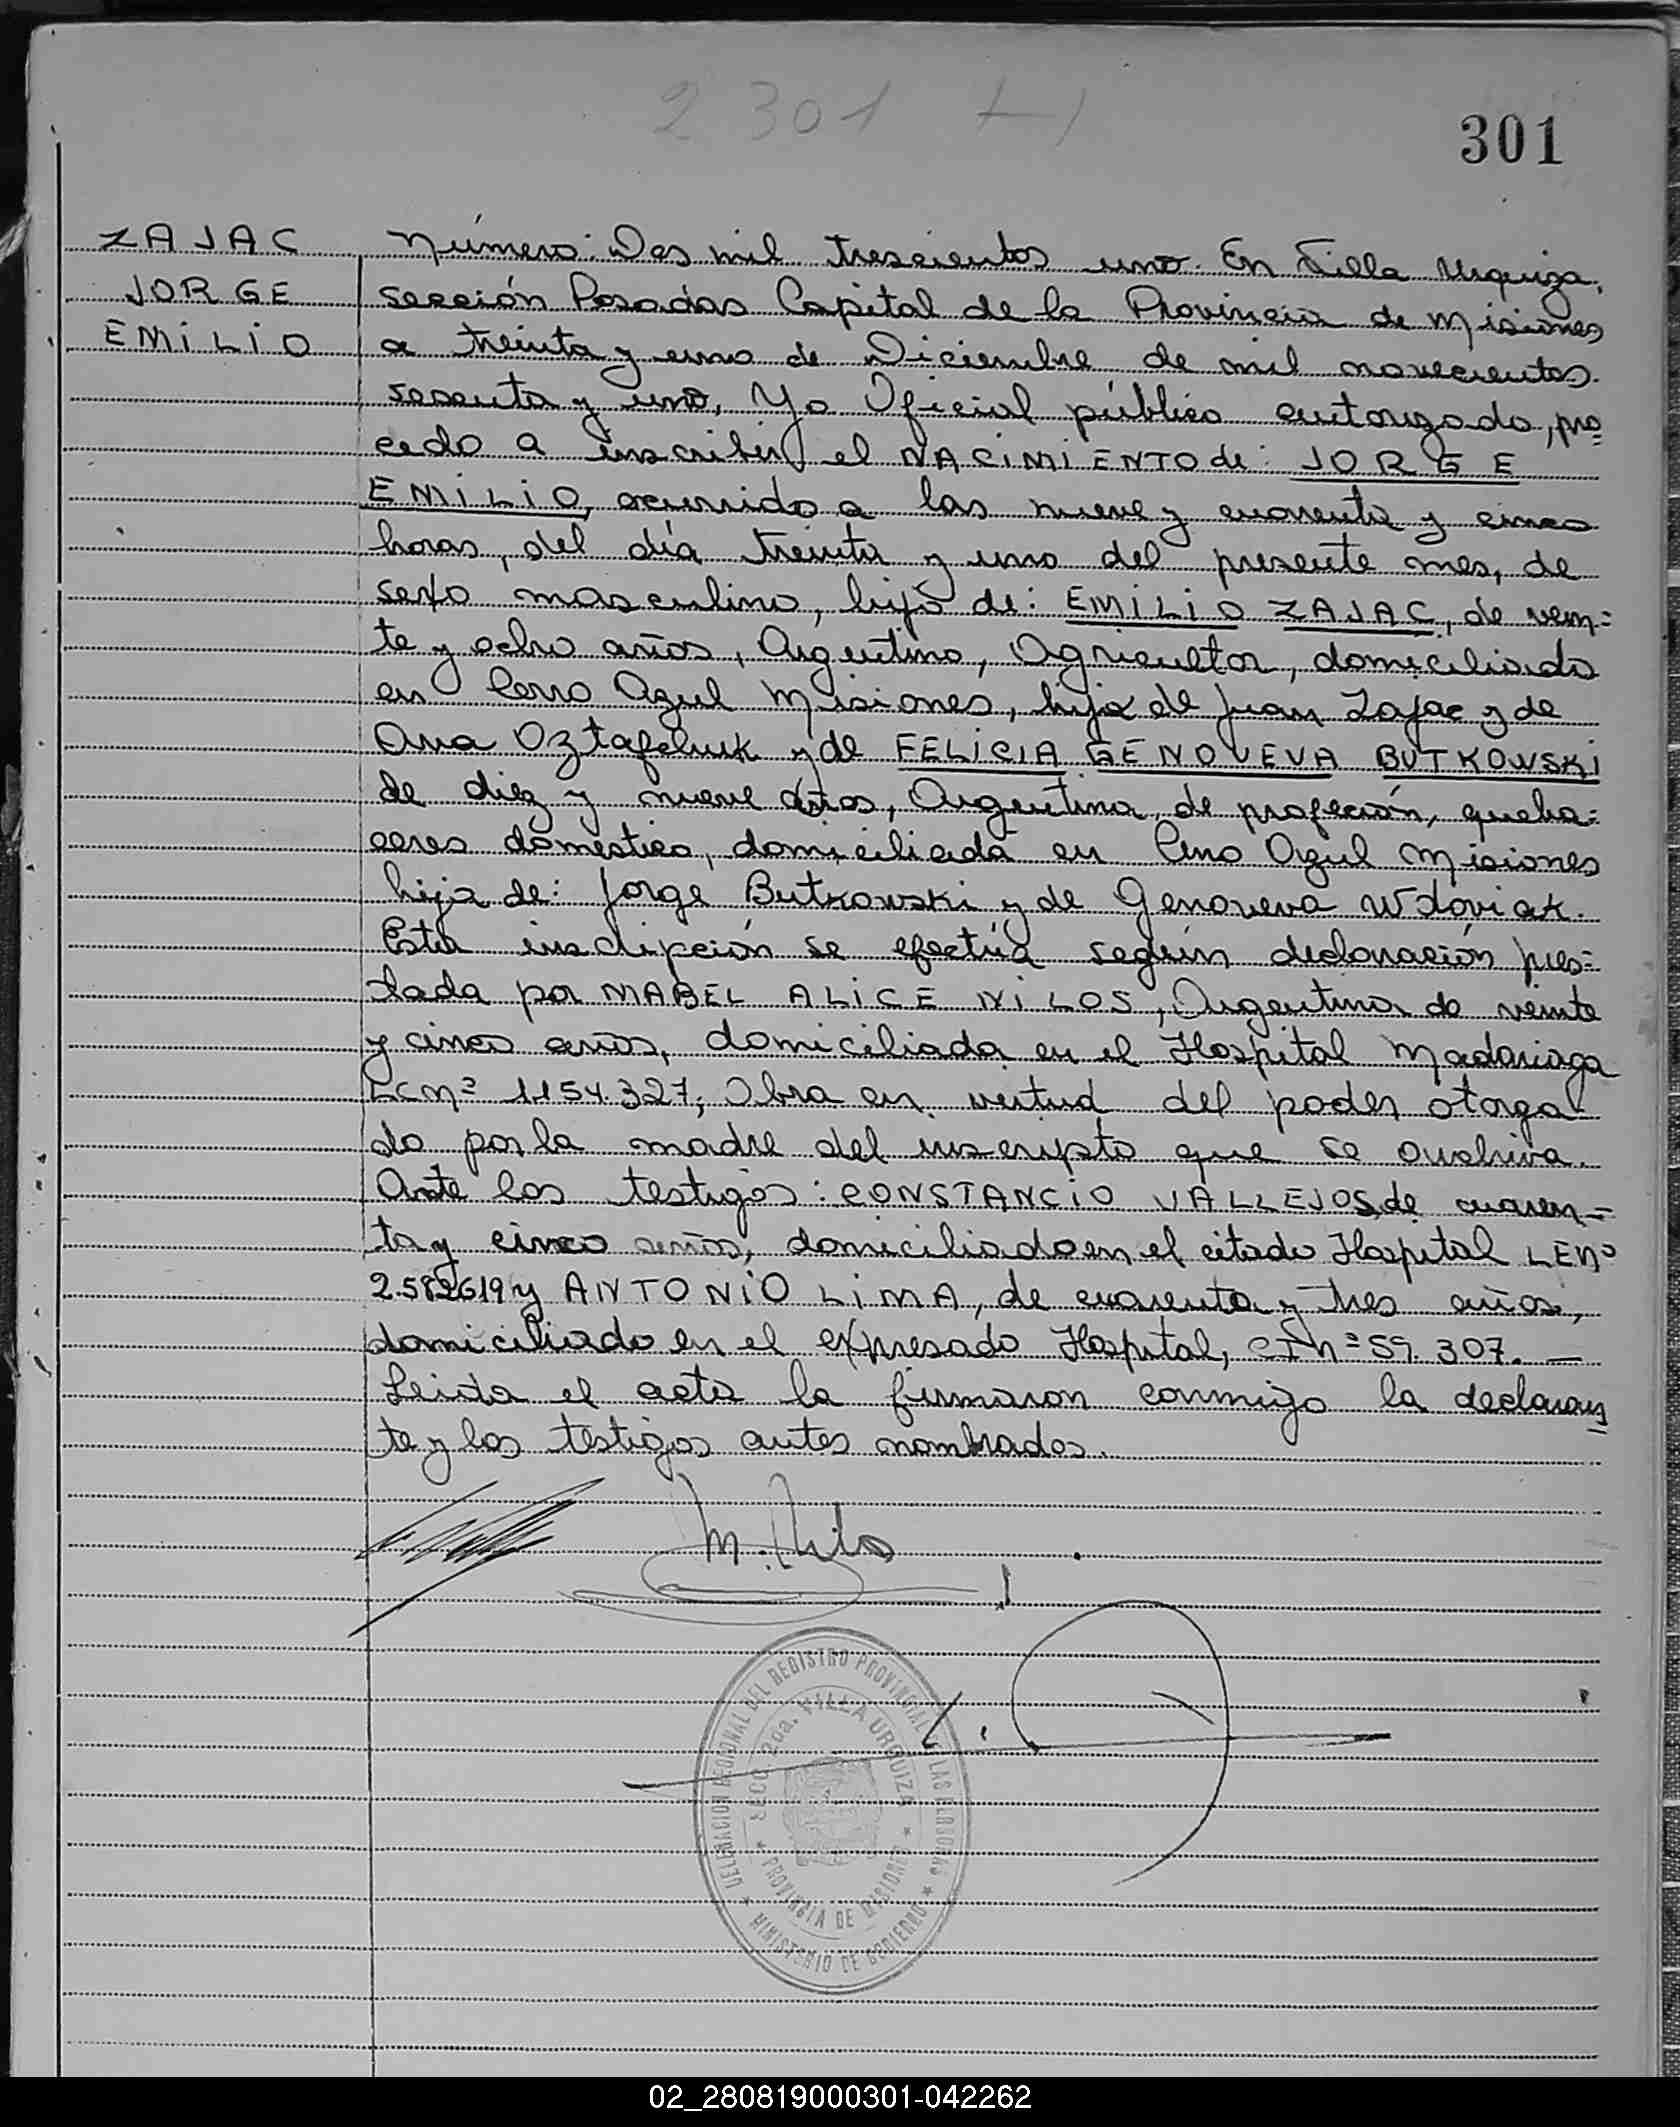 2301
301
ZAJAC
JORGE
EMILIO
Número: Dos mil trescientos uno. En Villa Urquiza,
sección Posadas Capital de la Provincia de Misiones
a treinta y uno de Diciembre de mil novecientos
sesenta y uno, Yo Oficial público autorgado, pro=
cedo a inscribir el NACIMIENTO de: JORGE
EMILIO, ocurrido a las nueve y cuarenta y cinco
horas, del día treinta y uno del presente mes, de
sexo masculino, hijo de: EMILIO ZAJAC, de vein=
te y ocho años, Argentino, Agricultor, domiciliado
en Cerro Azul Misiones, hijo de Juan Zajac y de
Ana Oztafchuk y de FELICIA GENOVEVA BUTKOWSKI
de diez y nueve años, Argentina, de profeción, queha=
ceres doméstico, domiciliada en Cerro Azul Misiones
hija de: Jorge Butkowski y de Genoveva Wdoviak.
Esta inscripción se efectúa según declaración pres=
tada por MABEL ALICE NILOS, Argentina de veinte
y cinco años, domiciliada en el Hospital Madariaga
LC nº 1154.327, Obra en virtud del poder otorga=
do por la madre del inscripto que se archiva.
Ante los testigos: CONSTANCIO VALLEJOS de cuaren=
ta y cinco años, domiciliado en el citado Hospital LE nº
2.582619 y ANTONIO LIMA, de cuarenta y tres años,
domiciliado en el expresado Hospital, CI nº 59.307. —
Leida el acta la firmaron conmigo la declaran=
te y los testigos antes nombrados.
DELEGACION REGIONAL DEL REGISTRO PROVINCIAL DE LAS PERSONAS
SECC. 2da. VILLA URQUIZA
PROVINCIA DE MISIONES
MINISTERIO DE GOBIERNO
02_280819000301-042262